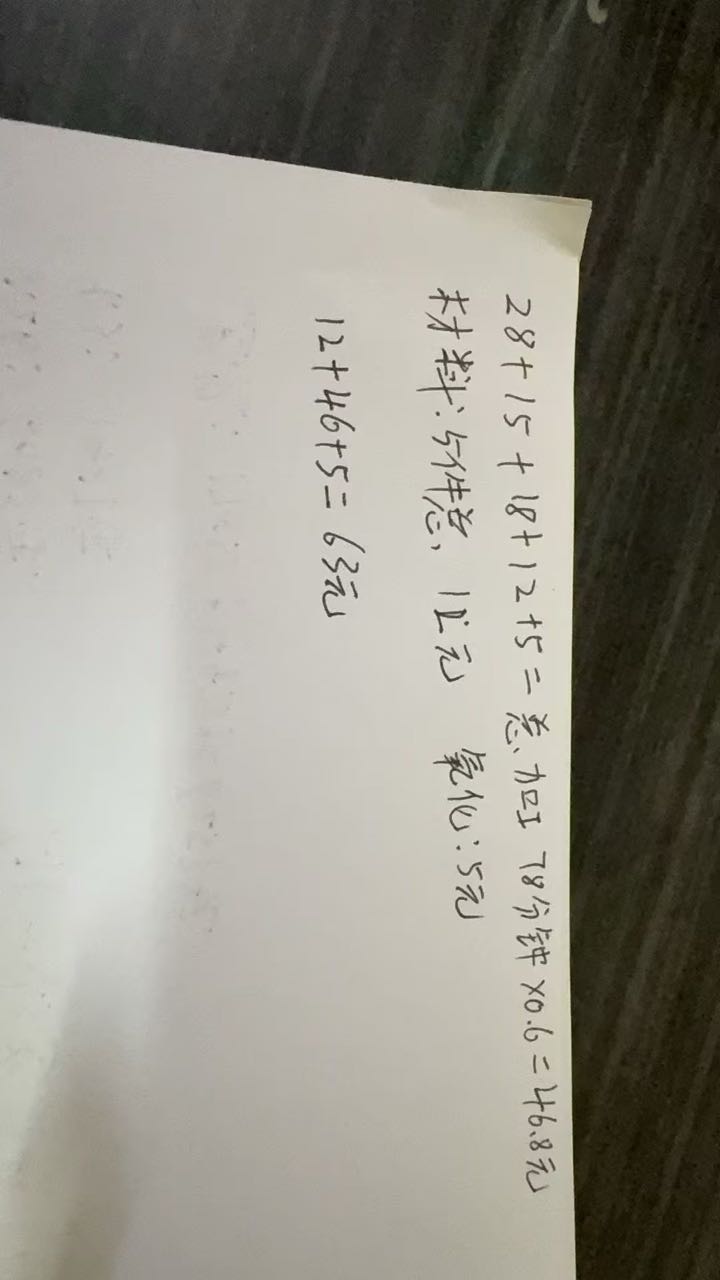 28+15+18+12+5=总加工 78分钟×0.6=46.8元
材料:5件总,12元 氧化:5元
12+46+5=63元